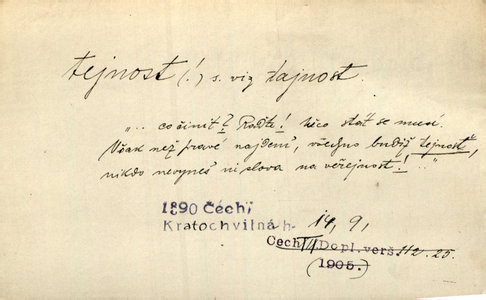 tejnost (!) s. viz tajnost.
„... co činit? Raďte! Něco stát se musí.
Však než pravé najdem, všechno budiž tejností,
nikdo nevynes ni slova na veřejnost! ..."
1890 Čech,
Kratochvilná h. 14, 9,
Čech III Dopl. verš. 112. 25.
(1905.)